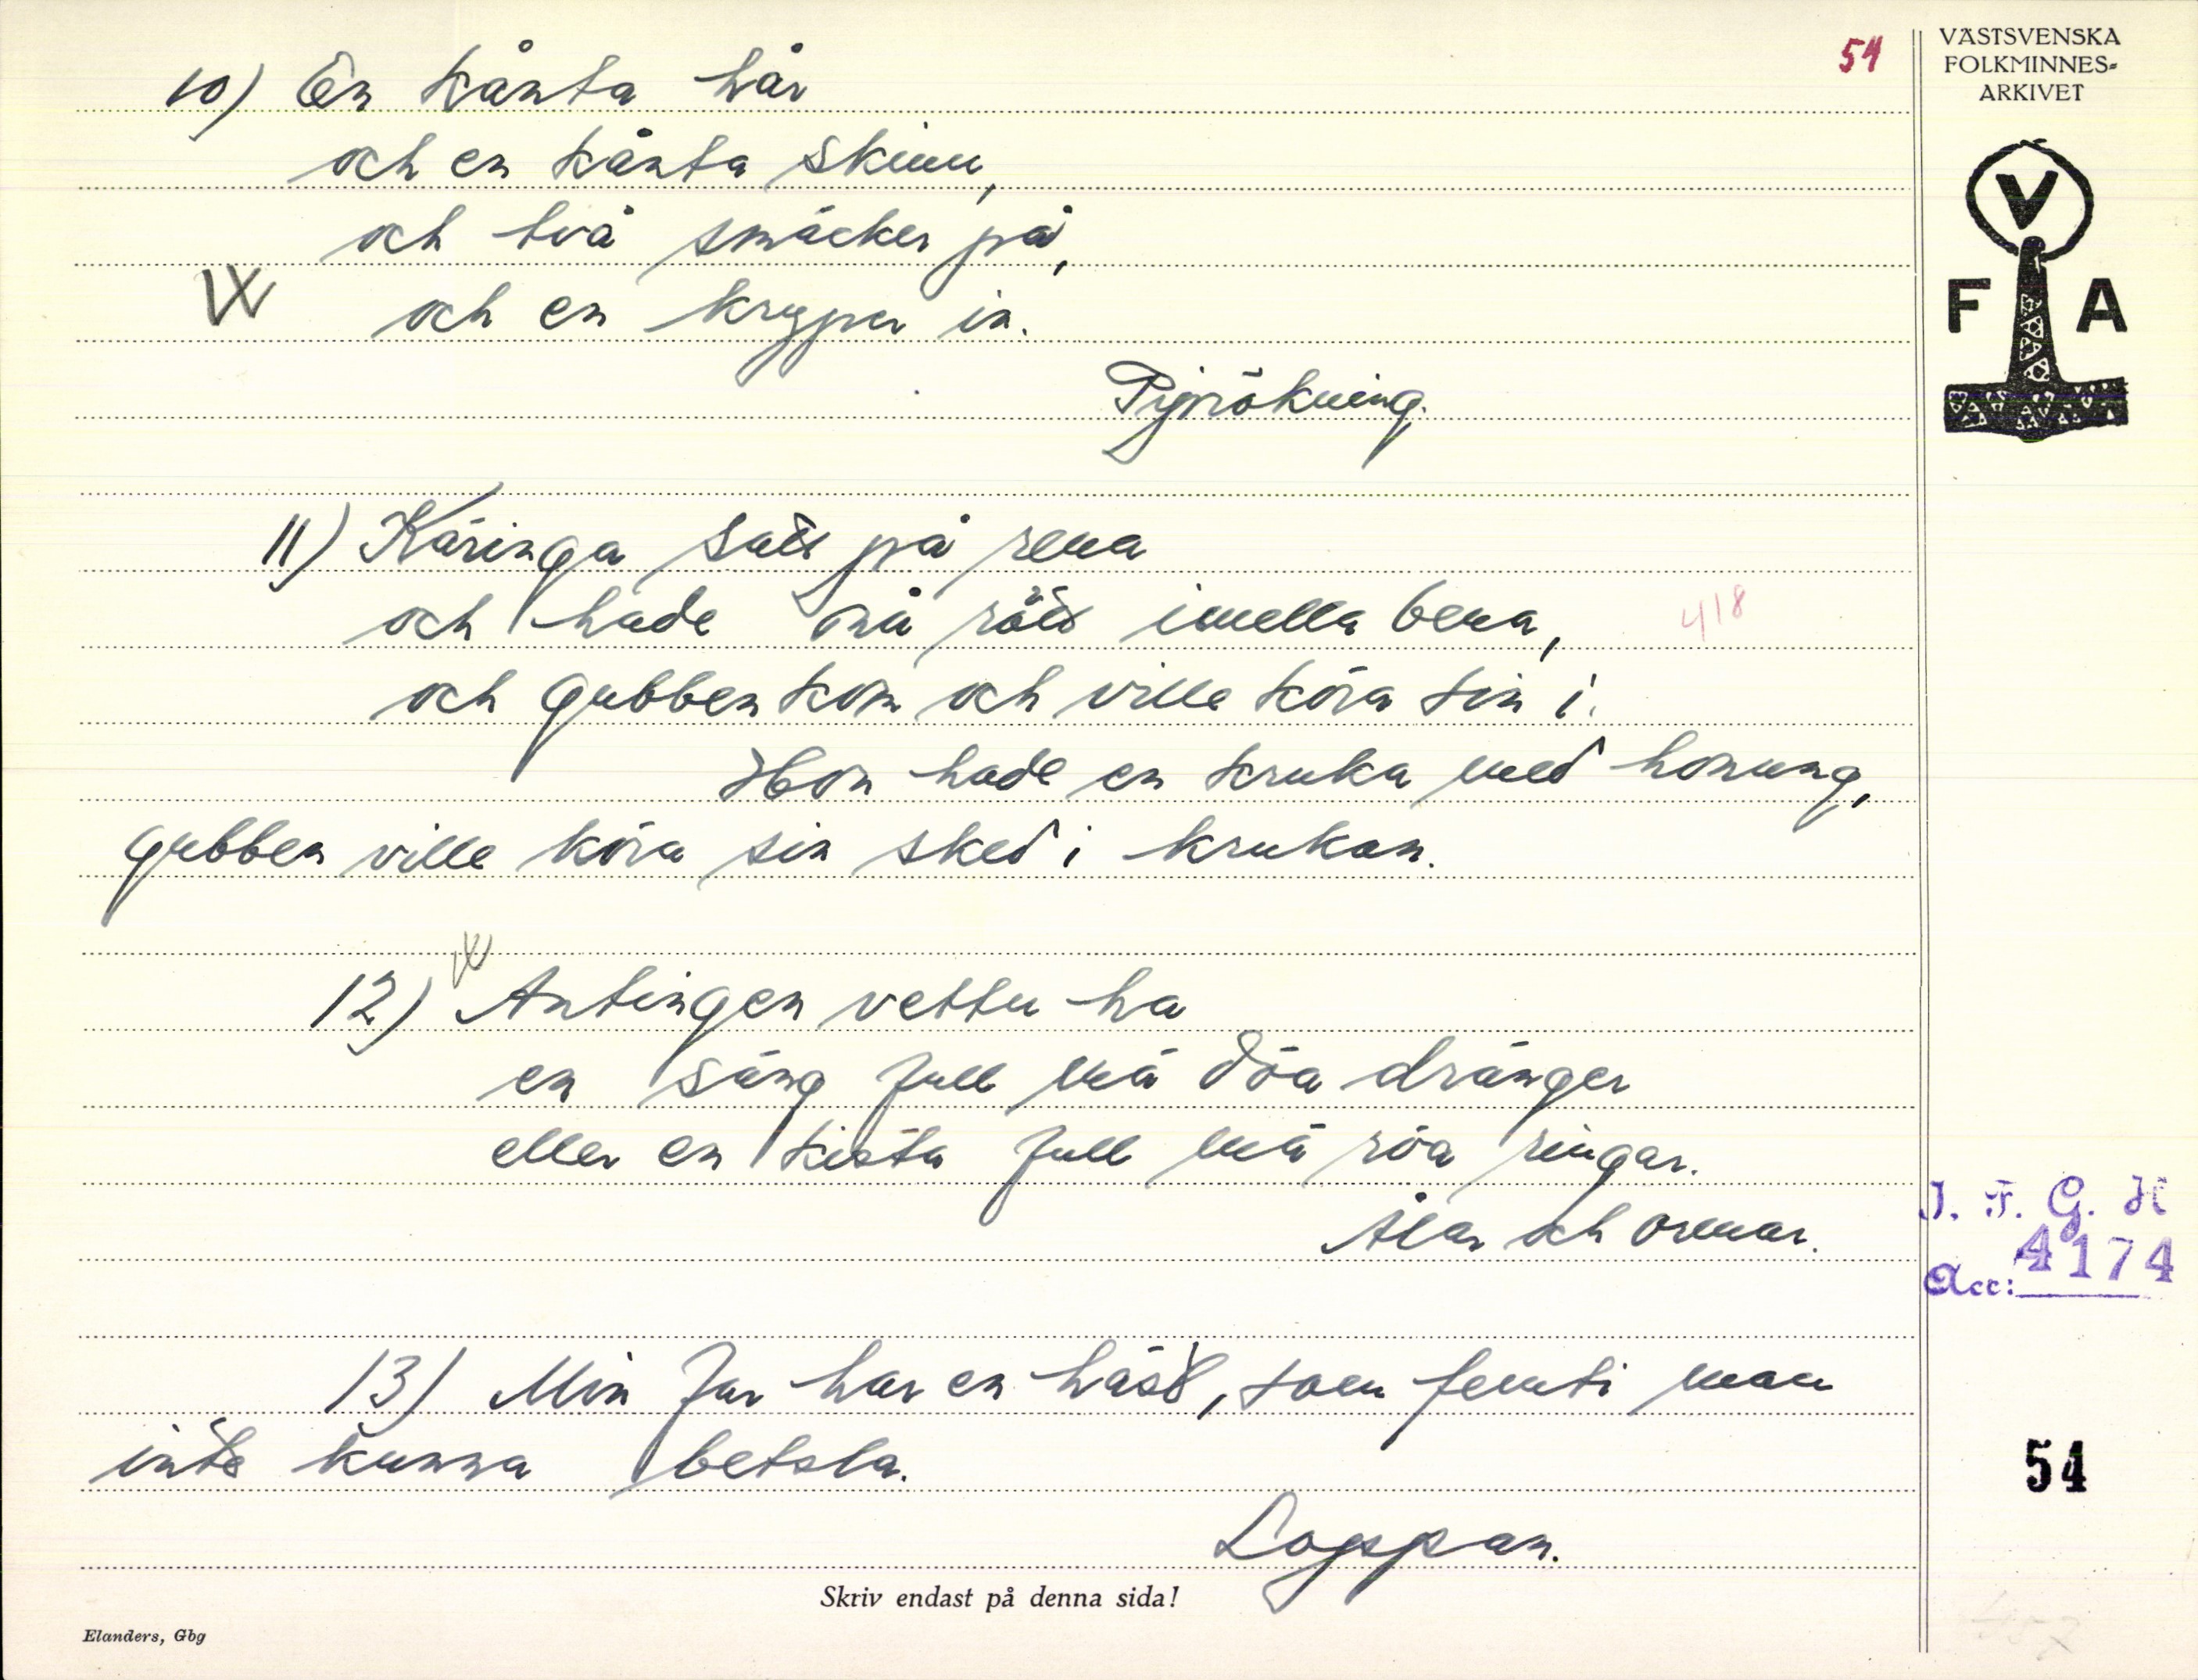 54
VÄSTSVENSKA
FOLKMINNES-
ARKIVET
V
F A
10) En kånta hår
och en kånta skinn,
och två smäcker på,
och en kryper in.
Piprökning.
11) Käringa satt på rena
och hade nå rött imella bena,
418
och gubben kom och ville köra sin i.
Hon hade en kruka med honung,
gubben ville köra sin sked i krukan.
12) Antingen vettu ha
en säng full mä döa dränger
eller en kista full mä röa ringar.
Ålar och ormar.
I. F. G. H
Acc: 4174
13) Min far har en häst, som femti man
inte kunna betsla.
54
Loppan.
Skriv endast på denna sida!
Elanders, Gbg